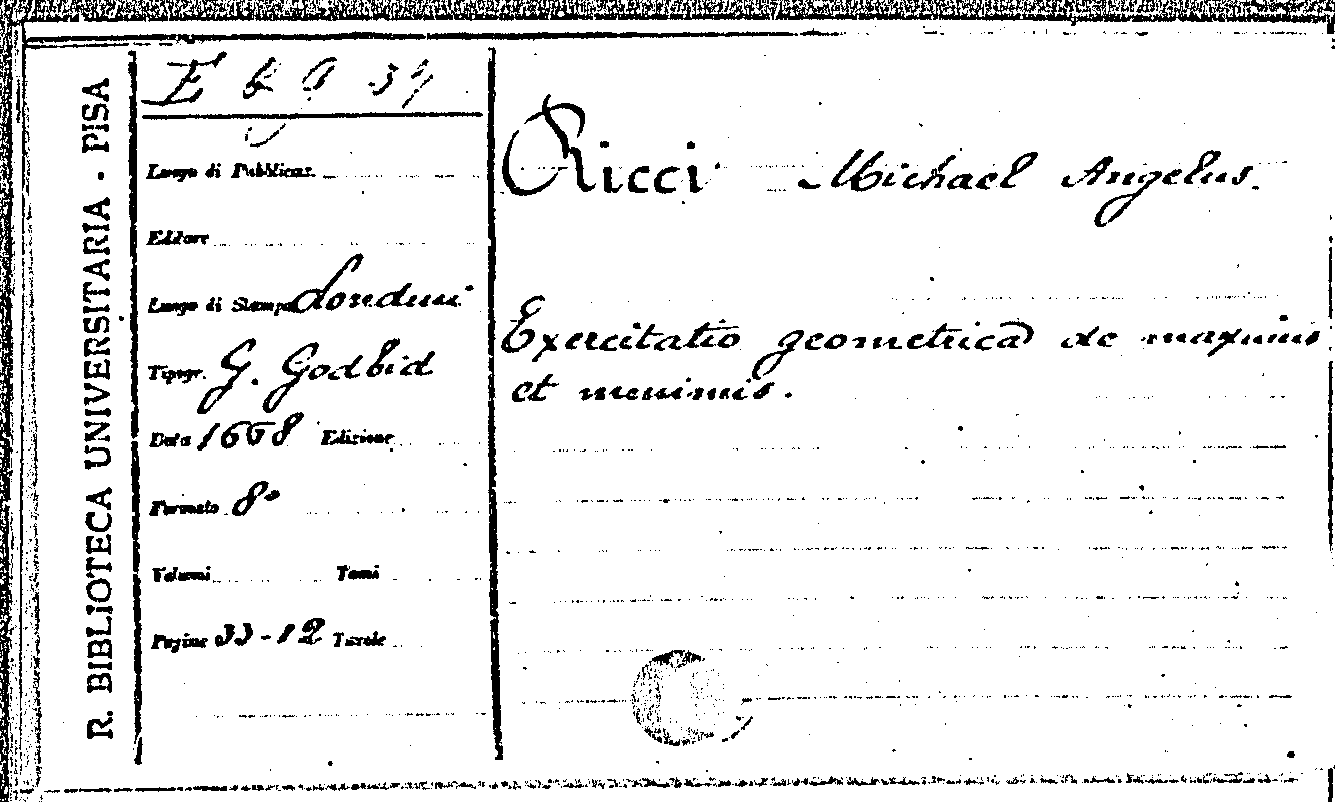 R. BIBLIOTECA UNIVERSITARIA - PISA
E b 9 37
Luogo di Pubblicaz.
Editore
Luogo di Stampa Londini
Tipogr. G. Godbid
Data 1668 Edizione
Formato 8°
Volumi Tomi
Pagine 33-12 Tavole
Ricci Michael Angelus.
Exercitatio geometrica de maximis
et minimis.